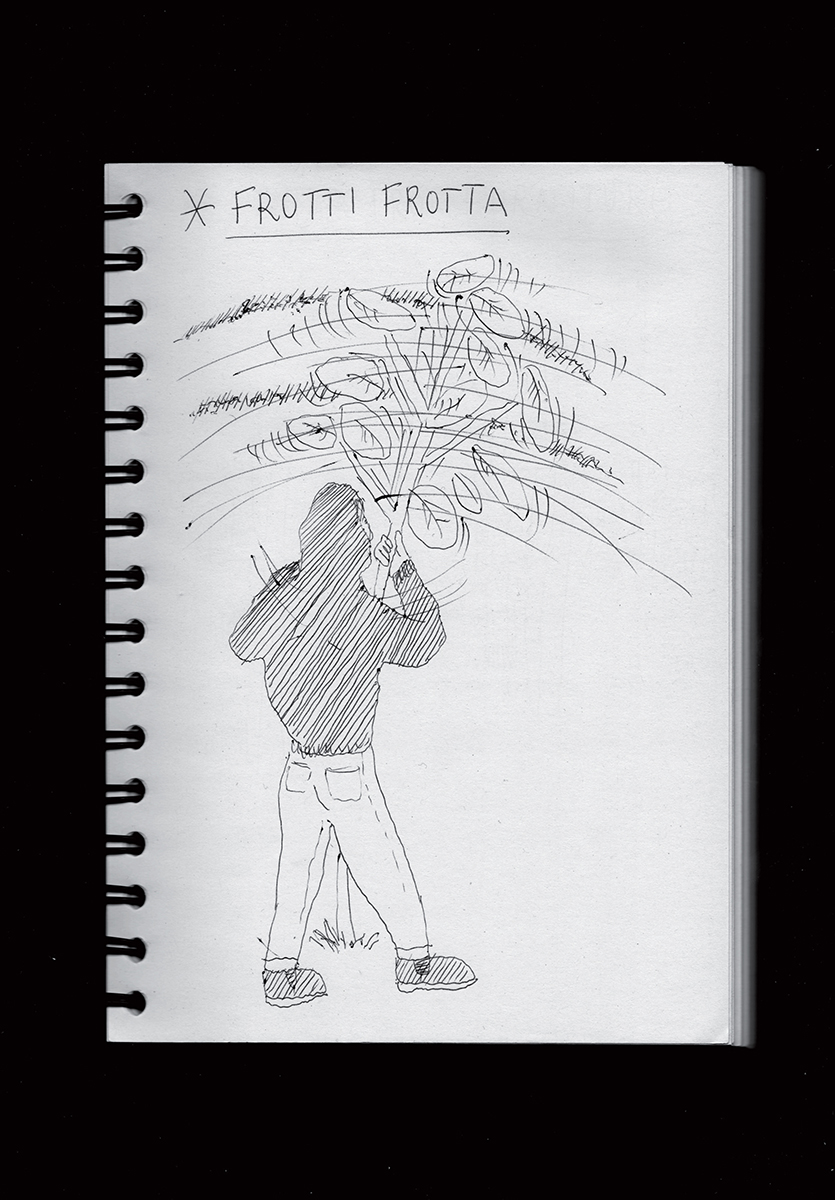 * FROTTI FROTTA